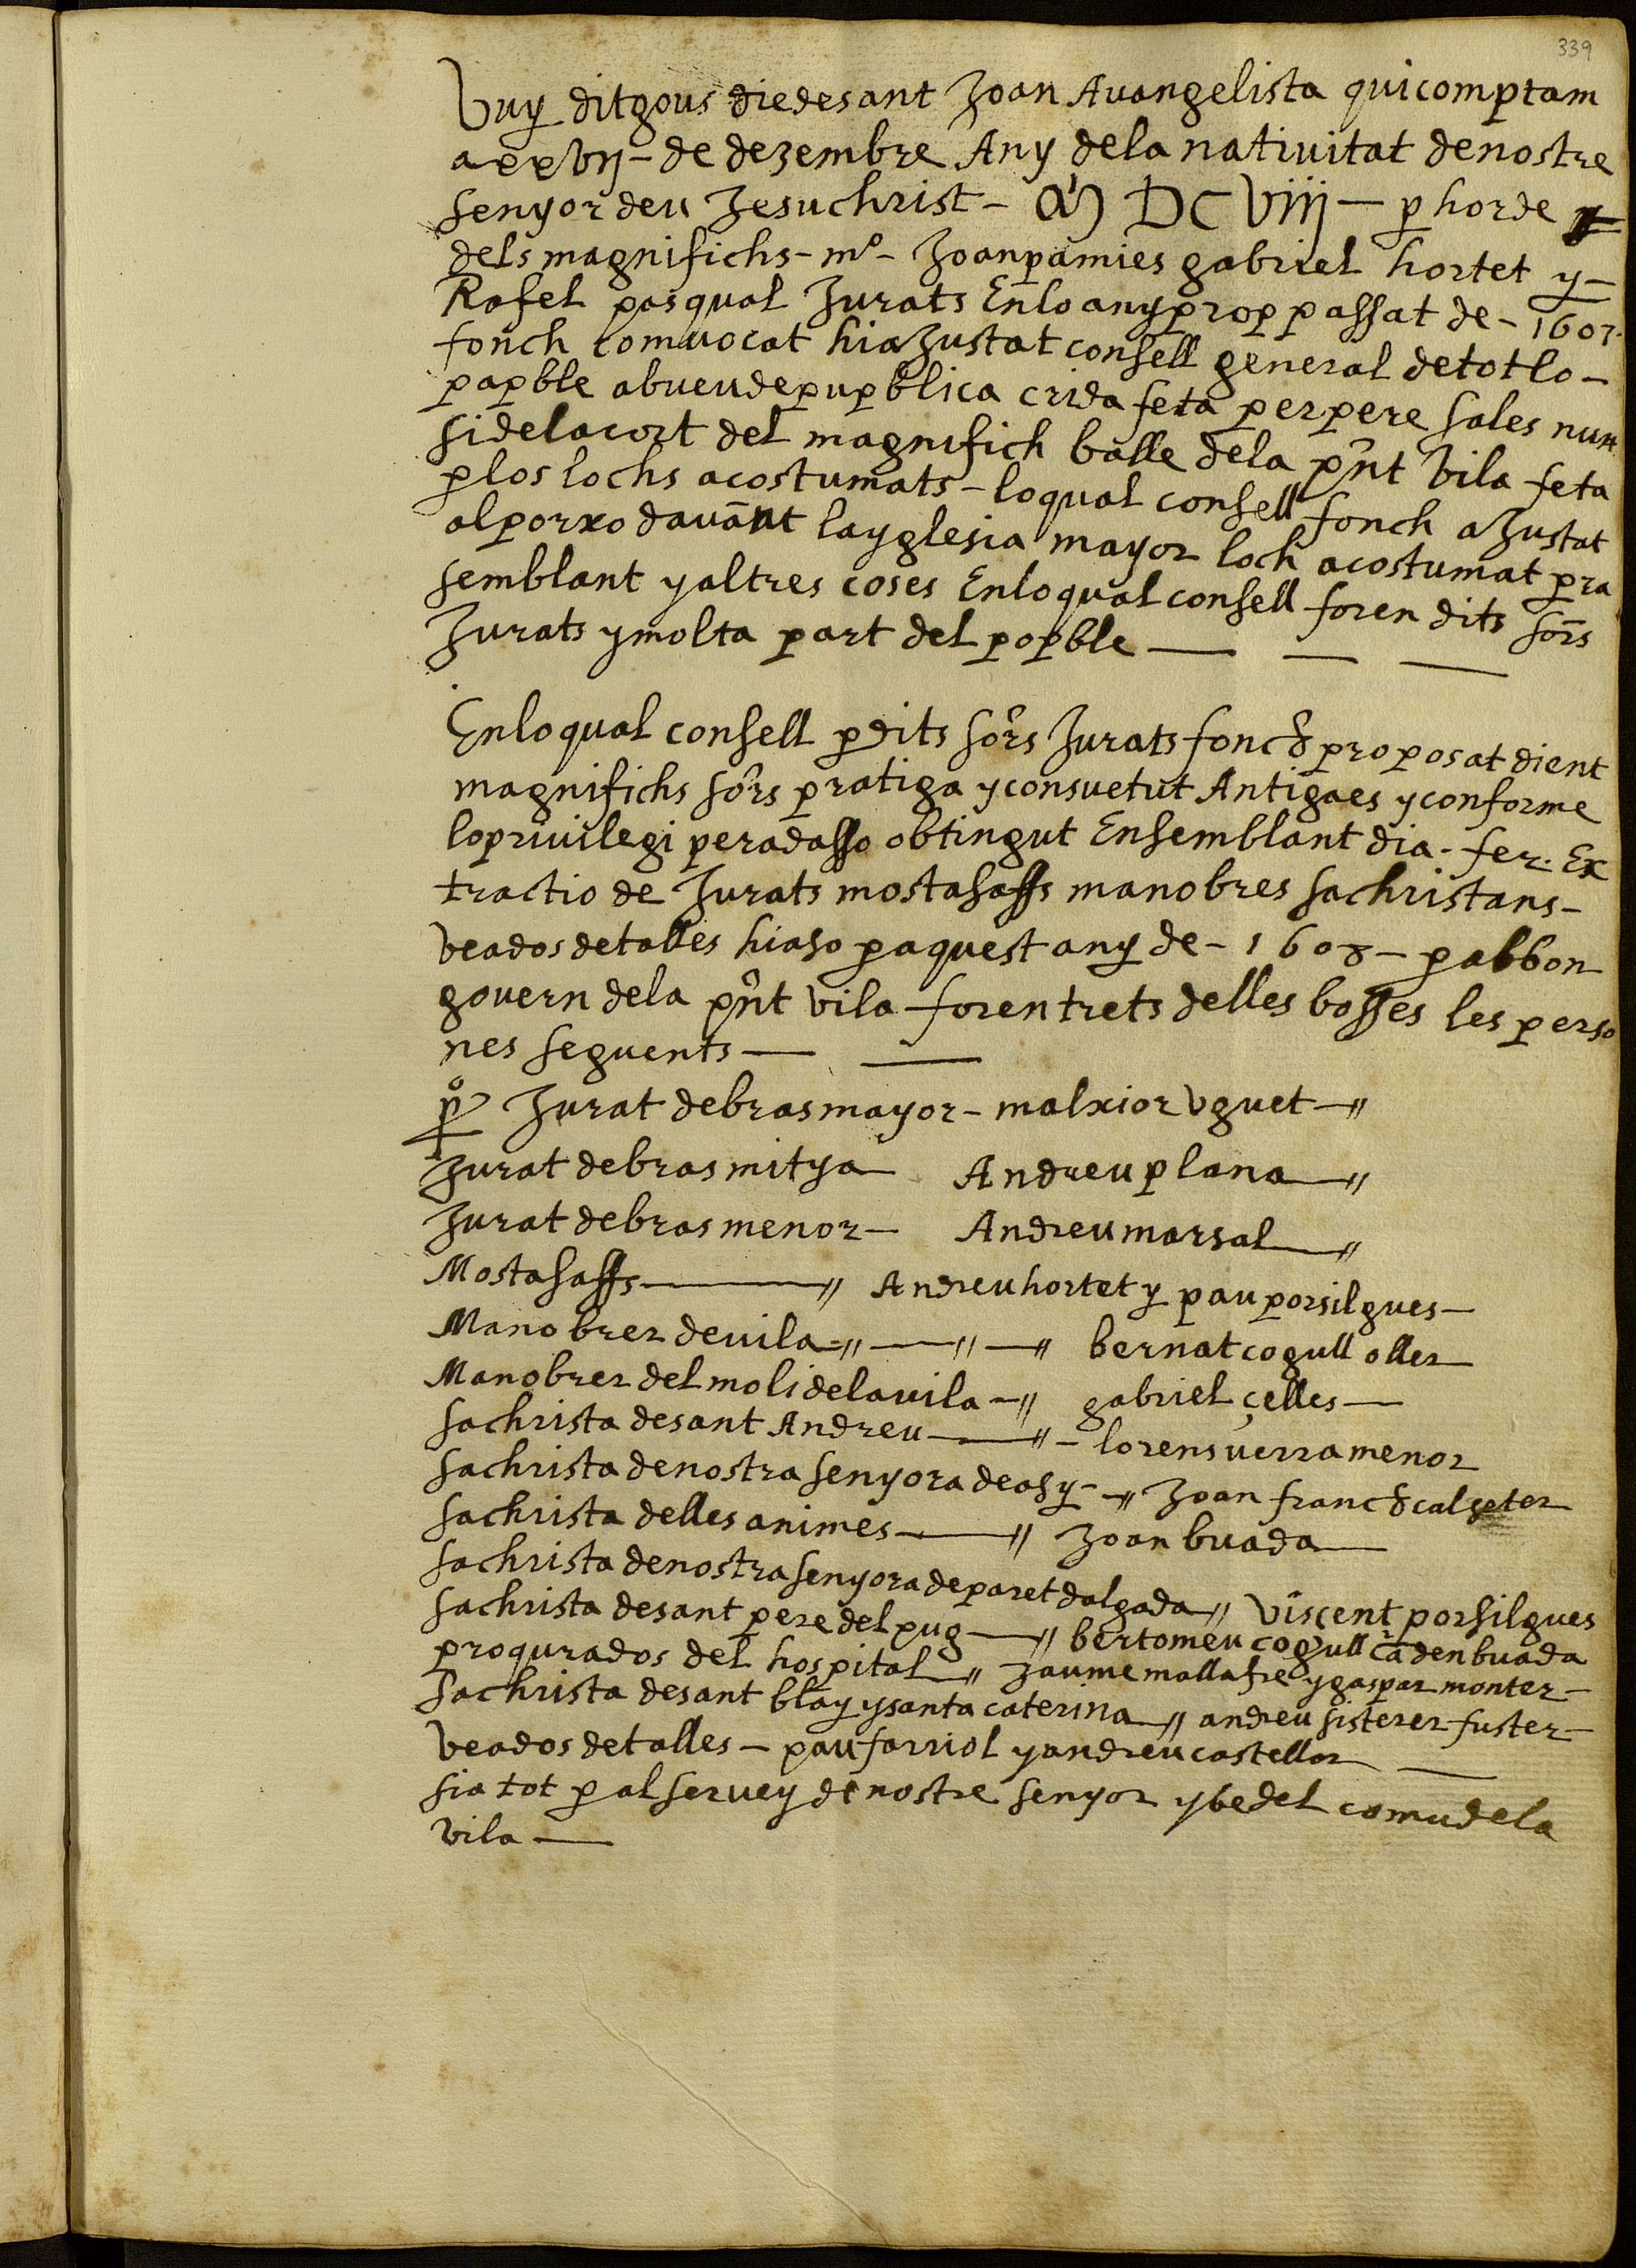 339
Vuy ditgous diedesant Joan Auangelista quicomptam
a xxvij - de dezembre Any dela natiuitat denostre
senyor deu Jesuchrist - M DC Viij — p horde
dels magnifichs - mº - Joan pamies gabriel hortet y -
Rafel pasqual Jurats Enlo any prop passat de - 1607.
fonch comuocat hiaJustat consell general detot lo -
papble ab ueu de pupblica crida feta per pere sales nun
si dela cort del magnifich balle dela pñt Vila feta
p los lochs acostumats - loqual consell fonch aJustat
al porxo dauãnt la yglesia mayor loch acostumat pra
semblant y altres coses Enloqual consell foren dits sõrs
Jurats y molta part del popble —
Enloqual consell p dits sõrs Jurats fonch proposat dient
magnifichs sõrs pratiga y consuetut Antiga es y conforme
lo priuilegi peradasso obtingut Ensemblant dia . fer . Ex
tractio de Jurats mostasaffs manobres sachristans -
veados de talles hiaso p aquest any de - 1608 - p ab bon
gouern dela pñt vila foren trets delles bosses les perso
nes seguents —
pº Jurat de bras mayor - malxior vguet —
Jurat de bras mitya Andreu plana —
Jurat de bras menor — Andreu marsal —
Mostasaffs — Andreu hortet y pau porsilgues —
Manobrer de vila — bernat cogull oller
Manobrer del moli dela vila — gabriel çelles —
sachrista de sant Andreu — lorens uerra menor
sachrista de nostra senyora de asy - Joan franch calseter
sachrista delles animes — Joan buada —
sachrista de nostra senyora de paret dalgada — viscent porsilgues
sachrista de sant pere del pug — bertomeu cogull cã den buada
proqurados del hospital — Jaume mallafre y gaspar monter —
sachrista de sant blay y santa caterina — andreu sisterer fuster —
veados de talles — pau farriol y andreu castellar —
sia tot p al seruey de nostre senyor y be del comu dela
vila —